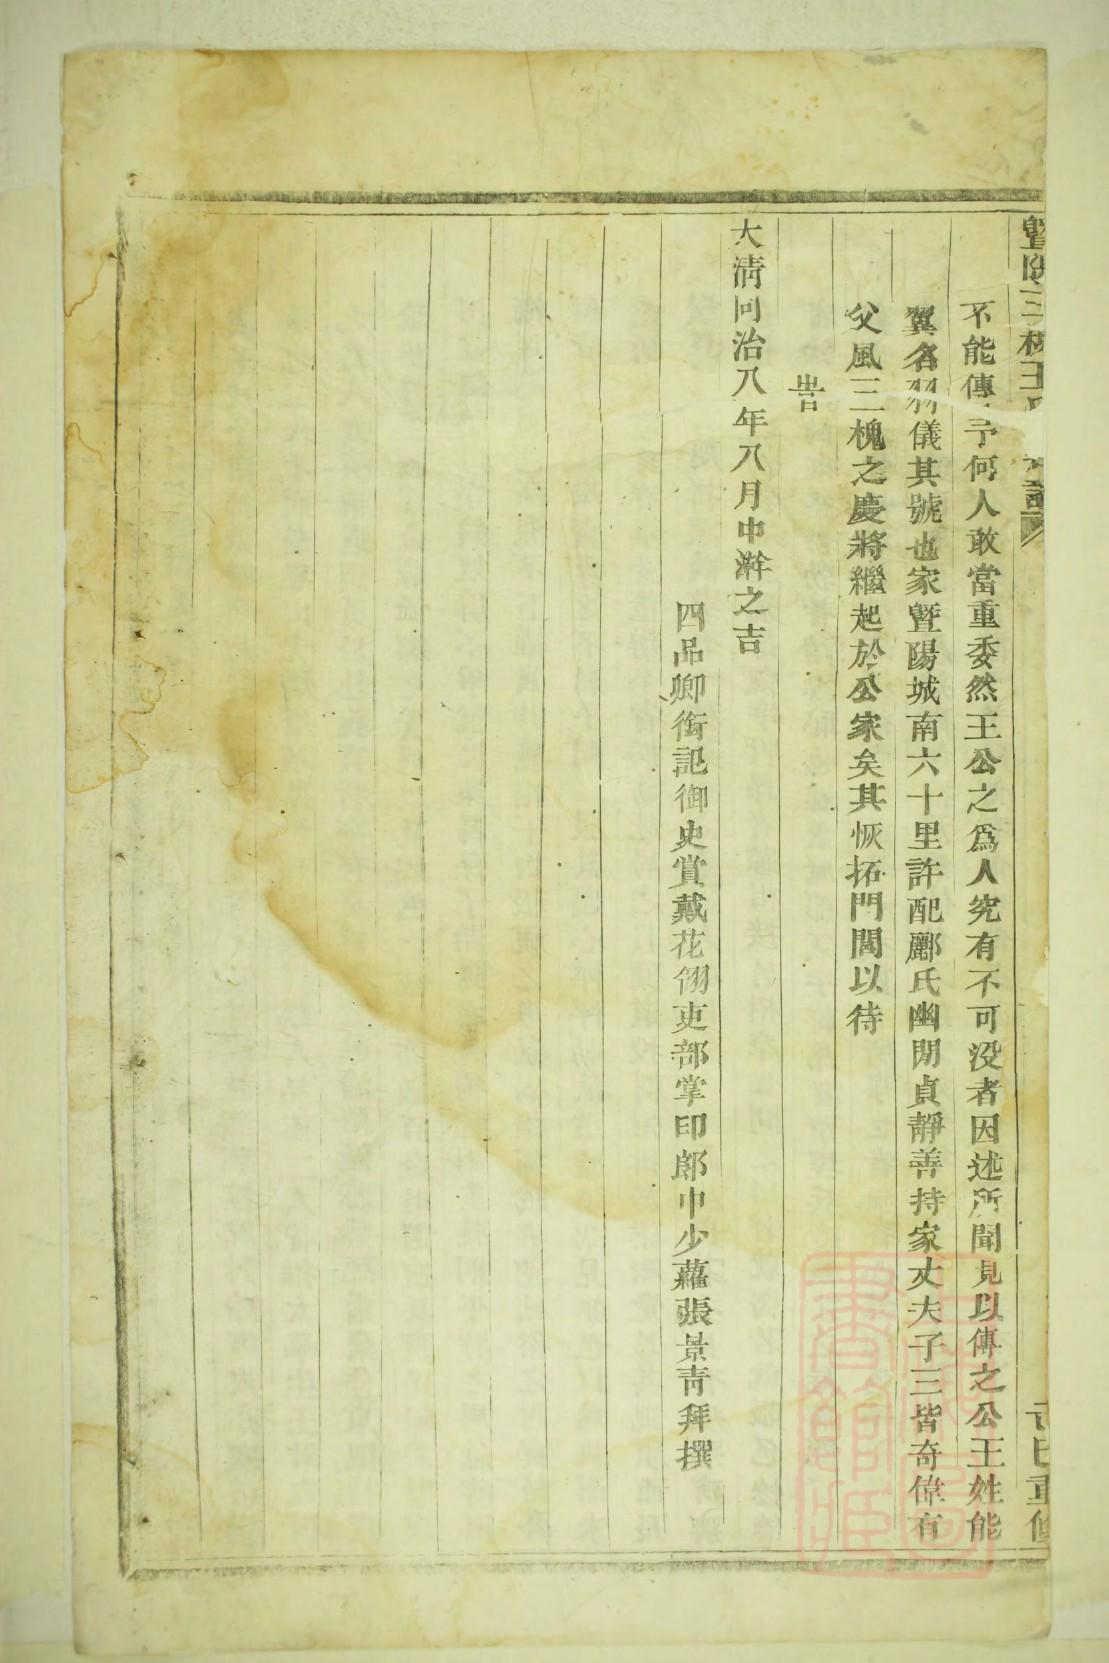 不能傳予何人敢當重委然王公之爲人究有不可没者因述所聞見以傳之公王姓能
翼名羽儀其號也家曁陽城南六十里許配酈氏幽閒貞靜善持家丈夫子三皆奇偉有
父風三槐之慶將繼起於公家矣其恢拓門閭以待
旹
大淸同治八年八月中澣之吉
四品卿銜記御史賞戴花翎吏部掌印郎中少蘿張景靑拜撰